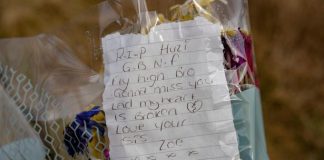 R.I.P Huzi
G.B.N.F
Fly high Bro
Gonna miss you
Lad my heart
is Broken
Love your
sis
Zoe
x x x